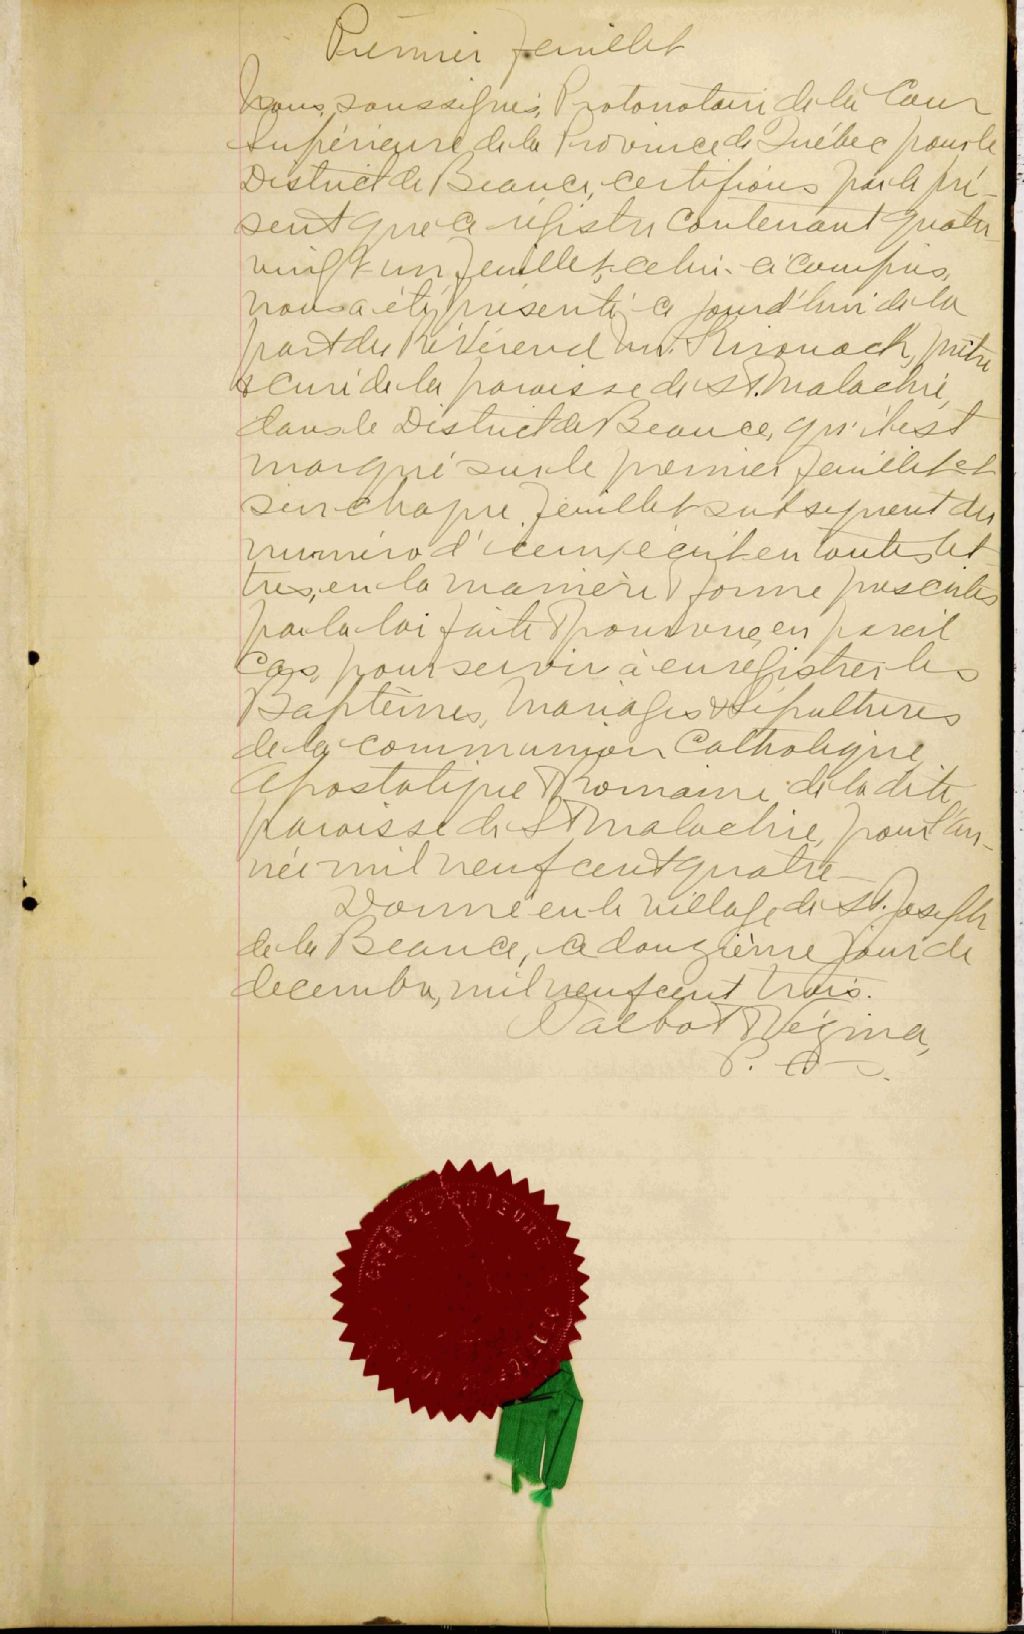 Premier feuillet
Nous, soussignés, Protonotaire de la Cour
Supérieure de la Province de Québec pour le
District de Beauce, certifions par le pré-
sent que ce régistre contenant quatre
vingt un feuillets, celui-ci compris,
nous a été présenté ce jourd'hui de la
part du Révérend Mr. Kirouack, prêtre
& curé de la paroisse de St. Malachie,
dans le District de Beauce, qu'il est
marqué sur le premier feuillet et
sur chaque feuillet subséquent du
numéro d'icelui écrit en toutes let-
tres, en la manière & forme prescrites
par la loi faite & pourvue, en pareil
cas, pour servir à enregistrer les
Baptêmes, Mariages & Sépultures
de la communion Catholique,
Apostolique & Romaine, de la dite
paroisse de St Malachie, pour l'an-
née mil neuf cent quatre –
Donné en le village de St. Joseph
de la Beauce, ce douzième jour de
decembre, mil neuf cent trois.
Talbot & Vézina,
P. C. S.
COUR SUPERIEURE